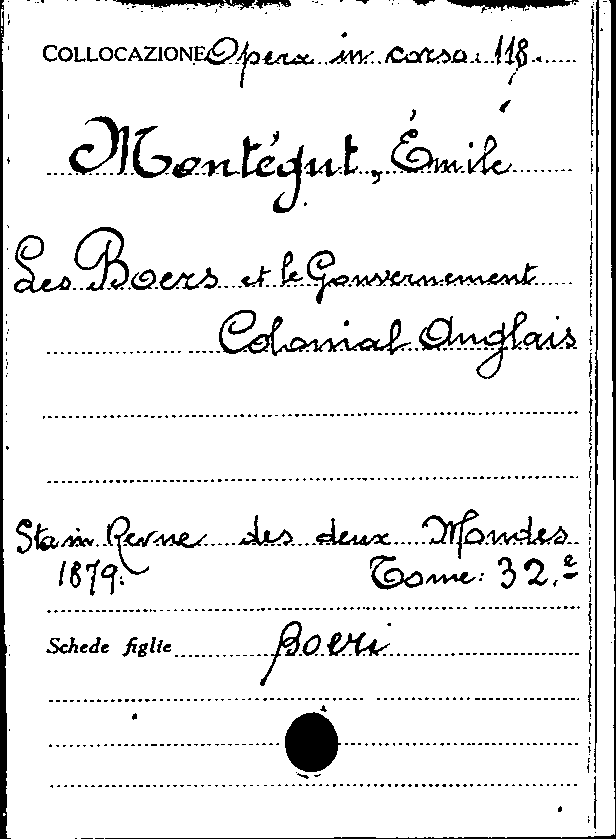 COLLOCAZIONE Opera in corso: 118.
Montégut, Émile
Les Boers et le Gouvernement
Colonial Anglais
Sta in Revue des deux Mondes
1879. Tome: 32.e
Schede figlie Boeri